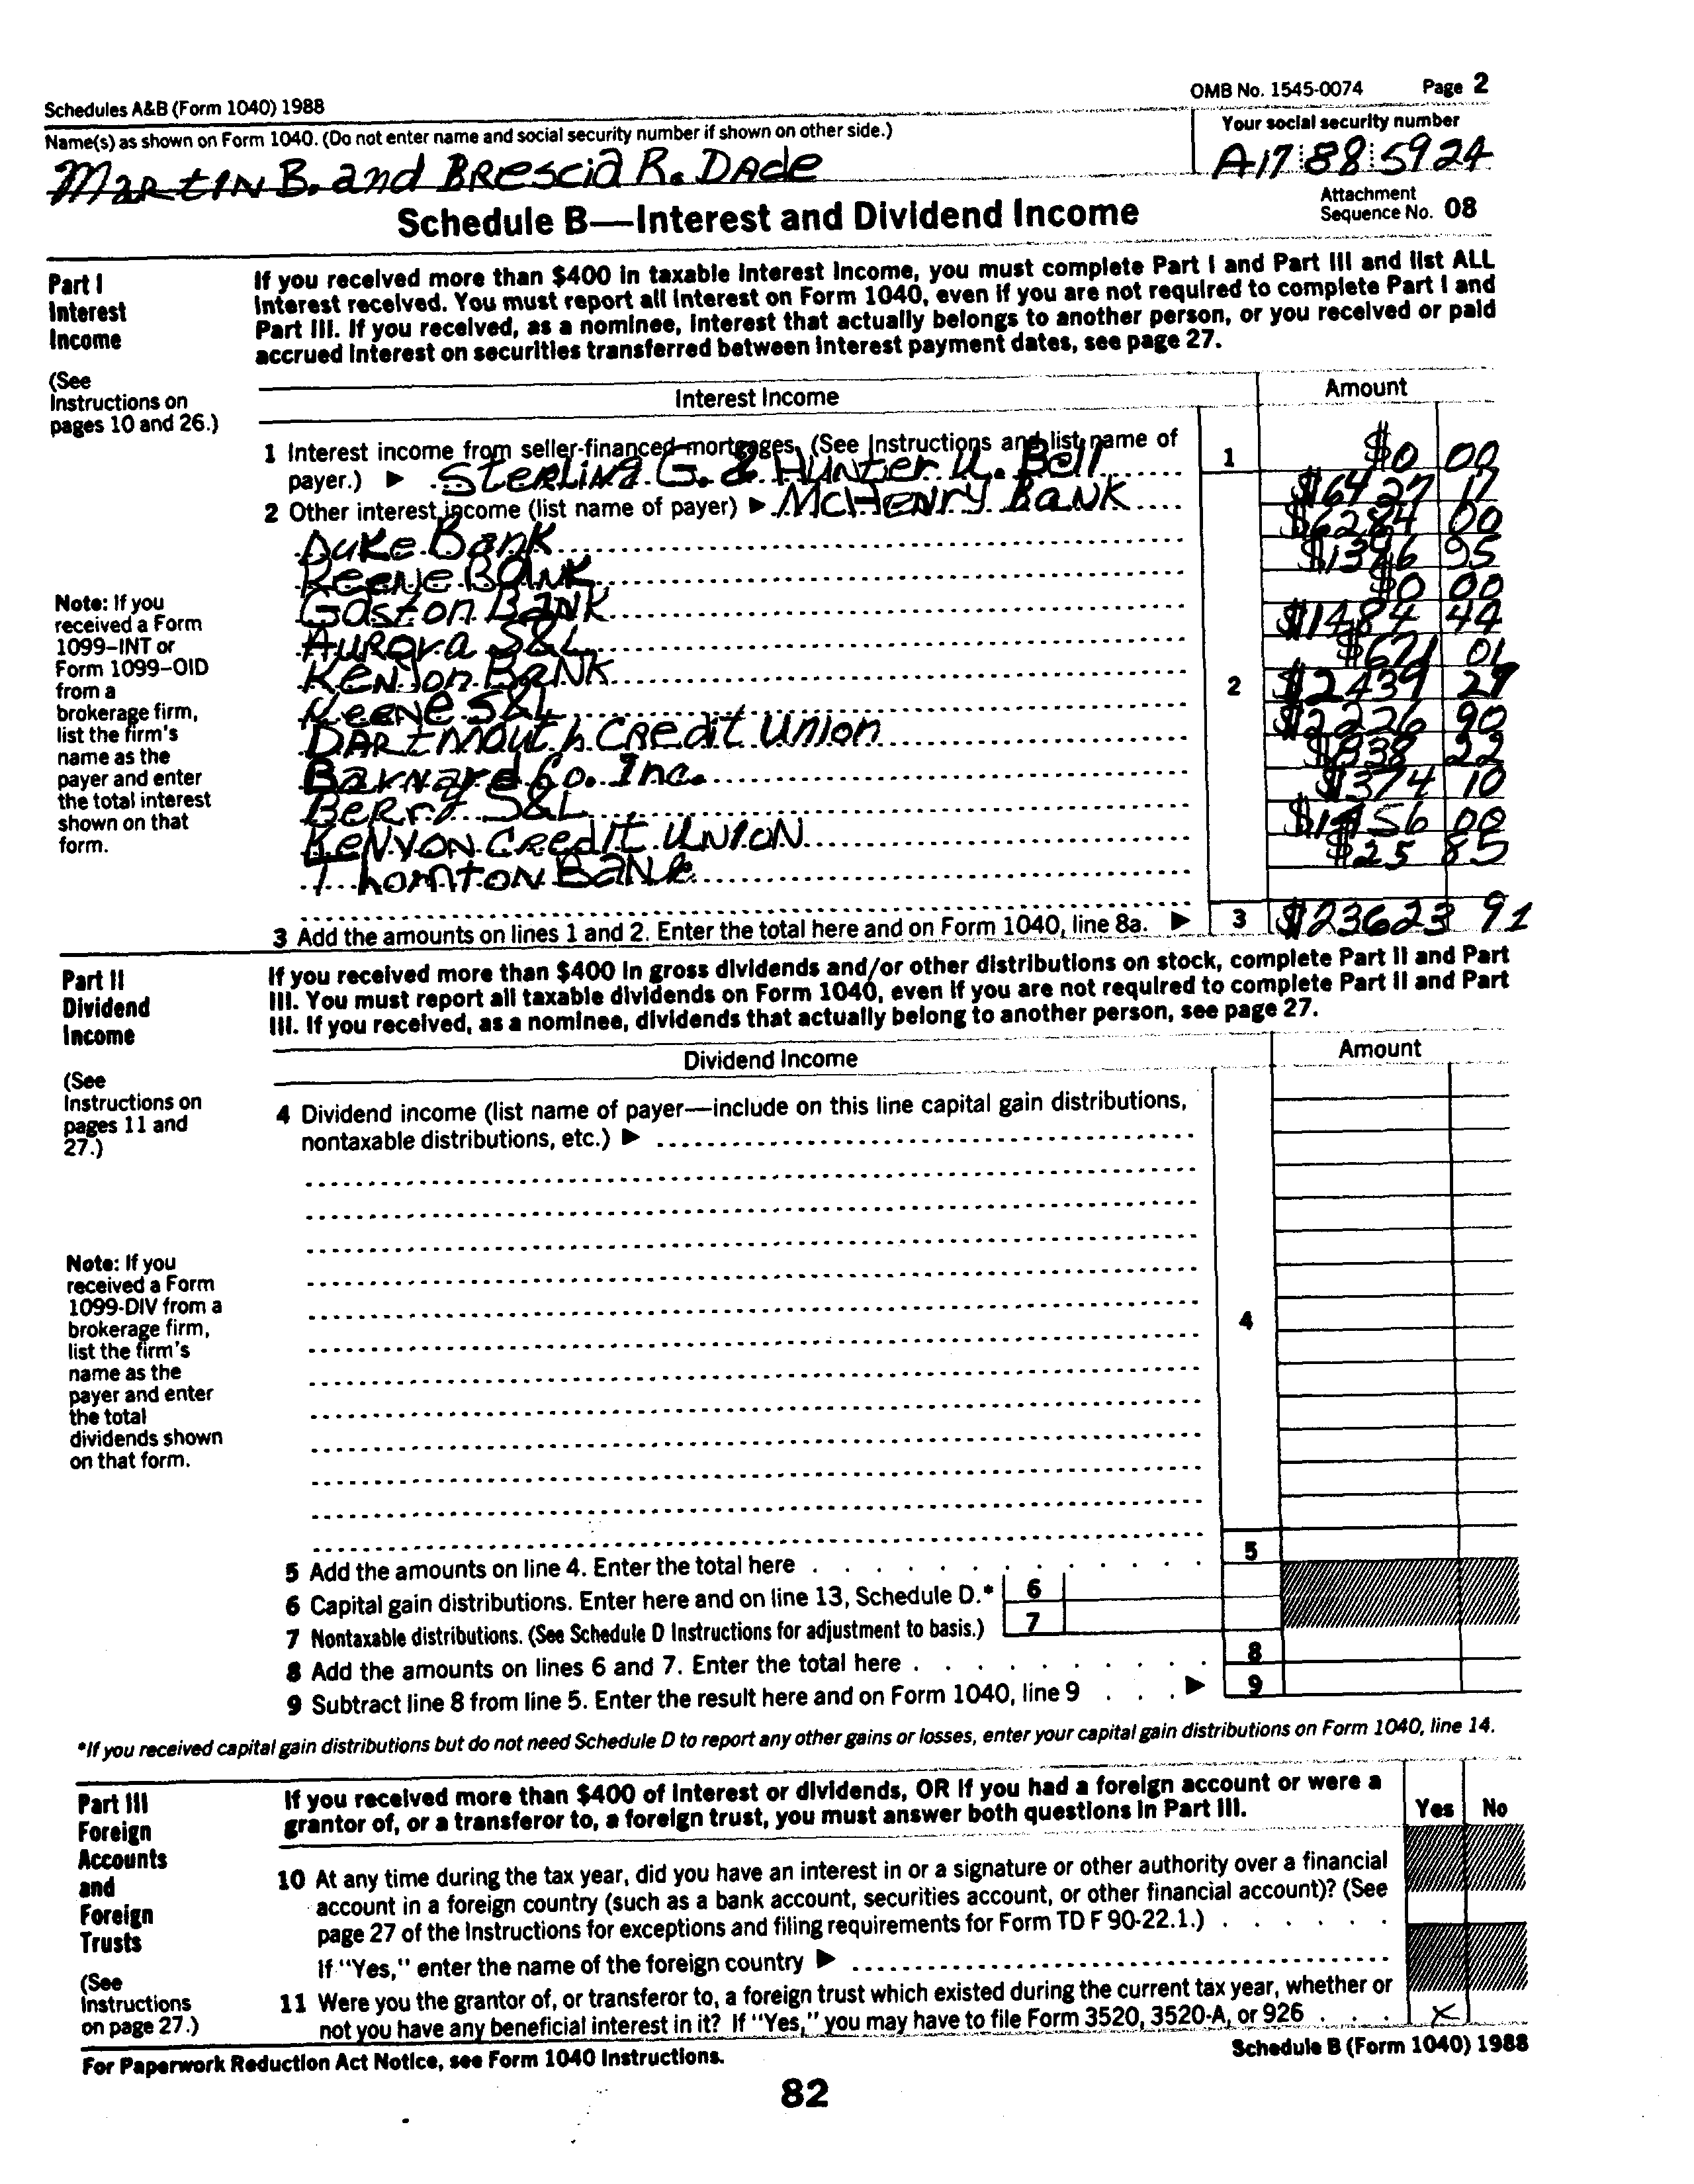 Schedules A&B (Form 1040) 1988
OMB No. 1545-0074 Page 2
Name(s) as shown on Form 1040. (Do not enter name and social security number if shown on other side.)
Your social security number
MARTIN B. and BRESCIA R. DADE
A17 88 5924
Schedule B—Interest and Dividend Income
Attachment
Sequence No. 08
Part I
Interest
Income
If you received more than $400 in taxable interest income, you must complete Part I and Part III and list ALL
interest received. You must report all interest on Form 1040, even if you are not required to complete Part I and
Part III. If you received, as a nominee, interest that actually belongs to another person, or you received or paid
accrued interest on securities transferred between interest payment dates, see page 27.
(See
Instructions on
pages 10 and 26.)
Interest Income
Amount
1 Interest income from seller-financed mortgages. (See Instructions and list name of
payer.) ▶ Sterling G. & Hunter U. Bell
1 $0 00
2 Other interest income (list name of payer) ▶ McHenry Bank
$6427 17
Duke Bank
$6284 00
Keene Bank
95
Gaston Bank
$0 00
Aurora S&L
$1484 44
Kenyon Bank
$671 01
Keene S&L
2 $2439 29
Dartmouth Credit Union
$2226 90
Barnard Co. Inc.
$838 22
Berry S&L
$374 10
Kenyon Credit Union
00
Thornton Bank
$25 85
Note: If you
received a Form
1099–INT or
Form 1099–OID
from a
brokerage firm,
list the firm's
name as the
payer and enter
the total interest
shown on that
form.
3 Add the amounts on lines 1 and 2. Enter the total here and on Form 1040, line 8a. ▶ 3 $23623 91
Part II
Dividend
Income
If you received more than $400 in gross dividends and/or other distributions on stock, complete Part II and Part
III. You must report all taxable dividends on Form 1040, even if you are not required to complete Part II and Part
III. If you received, as a nominee, dividends that actually belong to another person, see page 27.
(See
Instructions on
pages 11 and
27.)
Dividend Income
Amount
4 Dividend income (list name of payer—include on this line capital gain distributions,
nontaxable distributions, etc.) ▶
Note: If you
received a Form
1099-DIV from a
brokerage firm,
list the firm's
name as the
payer and enter
the total
dividends shown
on that form.
4
5 Add the amounts on line 4. Enter the total here 5
6 Capital gain distributions. Enter here and on line 13, Schedule D.* 6
7 Nontaxable distributions. (See Schedule D Instructions for adjustment to basis.) 7
8 Add the amounts on lines 6 and 7. Enter the total here 8
9 Subtract line 8 from line 5. Enter the result here and on Form 1040, line 9 ▶ 9
*If you received capital gain distributions but do not need Schedule D to report any other gains or losses, enter your capital gain distributions on Form 1040, line 14.
Part III
Foreign
Accounts
and
Foreign
Trusts
(See
Instructions
on page 27.)
If you received more than $400 of interest or dividends, OR if you had a foreign account or were a
grantor of, or a transferor to, a foreign trust, you must answer both questions in Part III.
Yes No
10 At any time during the tax year, did you have an interest in or a signature or other authority over a financial
account in a foreign country (such as a bank account, securities account, or other financial account)? (See
page 27 of the Instructions for exceptions and filing requirements for Form TD F 90-22.1.)
If "Yes," enter the name of the foreign country ▶
11 Were you the grantor of, or transferor to, a foreign trust which existed during the current tax year, whether or
not you have any beneficial interest in it? If "Yes," you may have to file Form 3520, 3520-A, or 926 X
For Paperwork Reduction Act Notice, see Form 1040 Instructions.
Schedule B (Form 1040) 1988
82